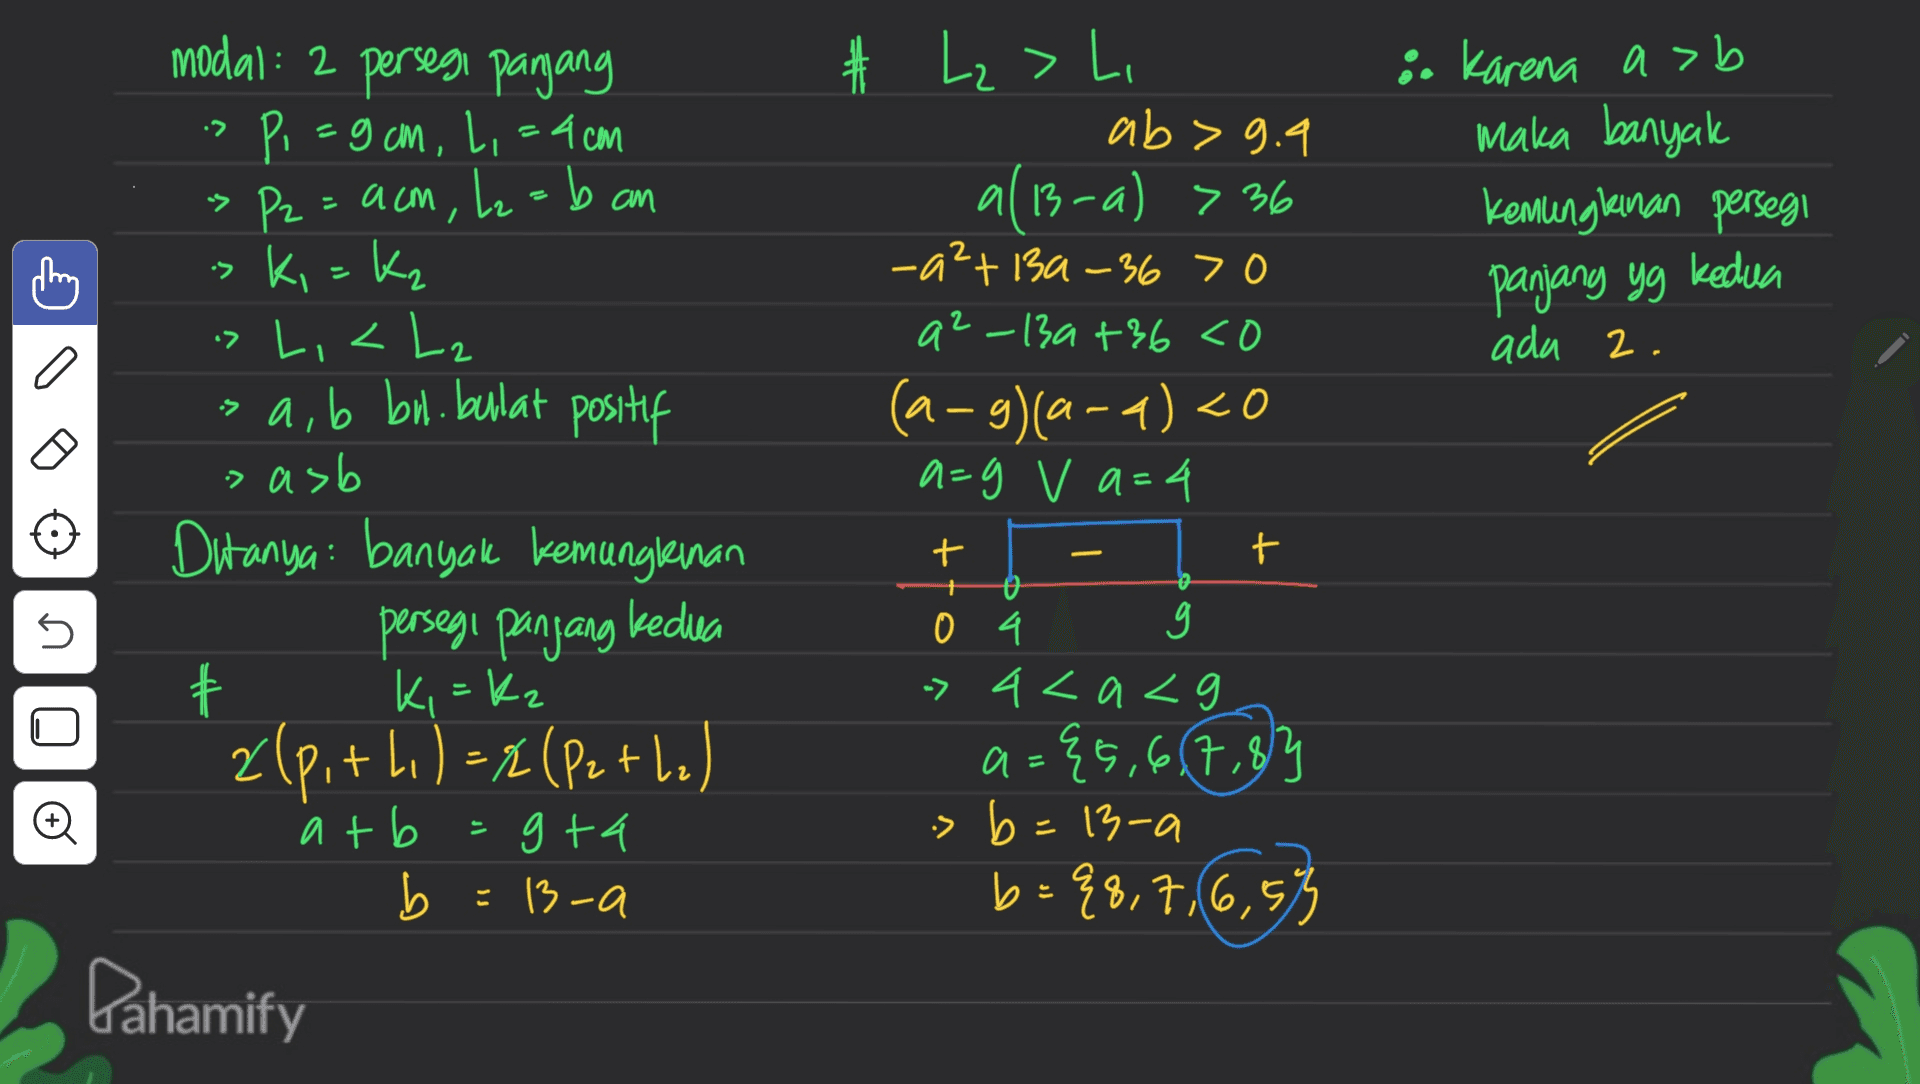 modal: 2 persegi panjang
-> P₁ = 9 cm, L₁ = 4 cm
-> P₂ = a cm, L₂ = b cm
-> K₁ = K₂
-> L₁ < L₂
-> a, b bil. bulat positif
-> a > b
Ditanya: banyak kemungkinan
persegi panjang kedua
# K₁ = K₂
2(P₁ + L₁) = 2(P₂ + L₂)
a + b = 9 + 4
b = 13 - a
# L₂ > L₁
ab > 9.4
a(13 - a) > 36
-a² + 13a - 36 > 0
a² - 13a + 36 < 0
(a - 9)(a - 4) < 0
a = 9 V a = 4
+ - +
0 4 9
-> 4 < a < 9
a = {5, 6, 7, 8}
-> b = 13 - a
b = {8, 7, 6, 5}
∴ karena a > b
maka banyak
kemungkinan persegi
panjang yg kedua
ada 2.
Pahamify